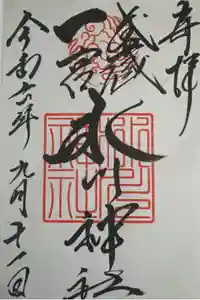 奉拝
武蔵
一宮
氷川神社
令和六年九月十一日